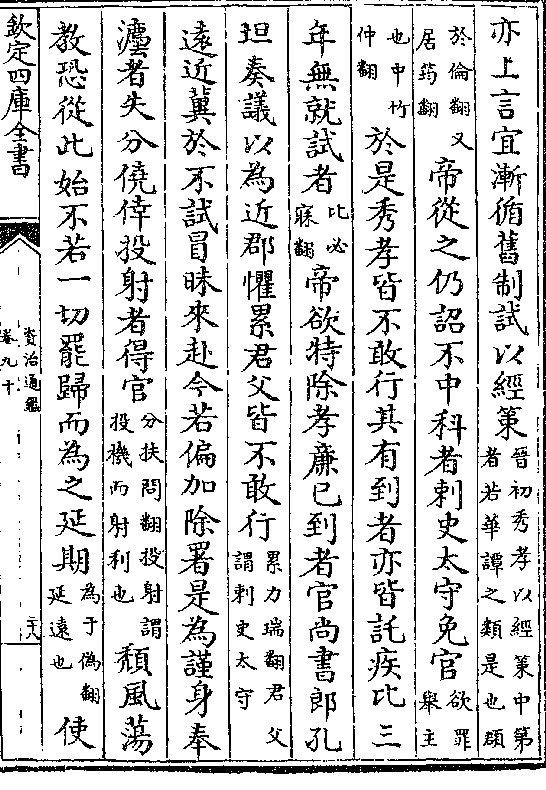 亦上言宜漸循舊制試以經策晉初秀孝以經策中第者若華譚之類是也頵
於倫翻又居筠翻帝從之仍詔不中科者刺史太守免官欲罪舉主
也中竹仲翻於是秀孝皆不敢行其有到者亦皆託疾比三
年無就試者比必寐翻帝欲特除孝廉已到者官尚書郎孔
坦奏議以為近郡懼累君父皆不敢行累力瑞翻君父謂刺史太守
遠近冀於不試冒昧來赴今若偏加除署是為謹身奉
灋者失分僥倖投射者得官分扶問翻投射謂投機而射利也頹風蕩
教恐從此始不若一切罷歸而為之延期為于偽翻延遠也使
欽定四庫全書
資治通鑑
卷九十